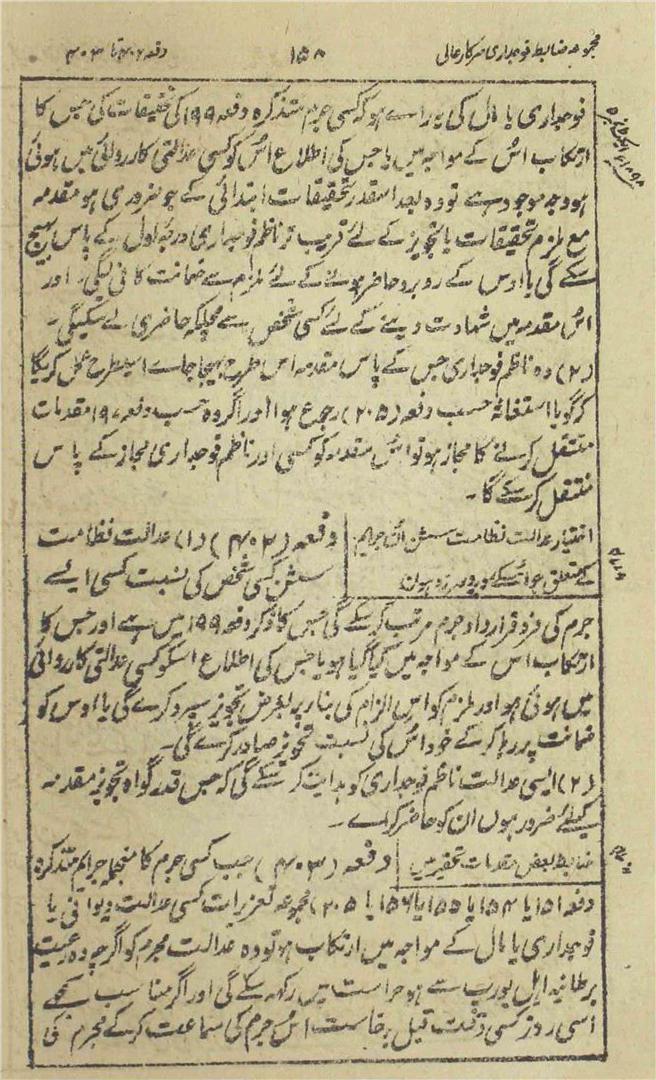 مجموعہ ضابطہ فوجداری سرکار عالی ۱۵۸ دفعہ ۴۰۲ تا ۴۰۳
فوجداری یا مال کی یہ راے ہو کہ کسی جرم متذکرہ دفعہ ۱۹۹ کی تحقیقات کی جس کا
ارتکاب اُس کے مواجہ میں یا جس کی اطلاع اُس کو کسی عدالتی کارروائی میں ہوئی
ہو وجہ موجود ہے تو وہ بعد اسقدر تحقیقات ابتدائی کے جو ضروری ہو مقدمہ
مع ملزم تحقیقات یا تجویز کے لئے قریب تر ناظم فوجداری درجہ اول کے پاس بھیج
سکے گی یا اوس کے روبرو حاضر ہونے کے لئے ملزم سے ضمانت کافی لیگی۔ اور
اُس مقدمہ میں شہادت دینے کے لئے کسی شخص سے مچلکہ حاضری لے سکیگی۔
(۲) وہ ناظم فوجداری جس کے پاس مقدمہ اس طرح بھیجا جاے اسیطرح عمل کریگا
کہ گویا استغاثہ حسب دفعہ (۲۰۵) رجوع ہوا اور اگر وہ حسب دفعہ ۱۹۷ مقدمات
منتقل کرنے کا مجاز ہو تو اُس مقدمہ کو کسی اور ناظم فوجداری مجاز کے پاس
منتقل کرسکے گا۔
اختیار عدالت نظامت سشن اُن جرایم
کے متعلق جو اُسکے روبرو سرزد ہوں
دفعہ (۴۰۲) (۱) عدالت نظامت
سشن کسی شخص کی نسبت کسی ایسے
جرم کی فرد قرارداد جرم مرتب کرسکے گی جس کا ذکر دفعہ ۱۹۹ میں ہے اور جس کا
ارتکاب اس کے مواجہ میں کیا گیا ہو یا جس کی اطلاع اسکو کسی عدالتی کارروائی
میں ہوئی ہو اور ملزم کو اس الزام کی بناء پر بغرض تجویز سپرد کرے گی یا اوس کو
ضمانت پر رہا کرکے خود اُس کی نسبت تجویز صادر کرے گی۔
(۲) ایسی عدالت ناظم فوجداری کو ہدایت کرسکے گی کہ جس قدر گواہ تجویز مقدمہ
کیلئے ضرور ہوں ان کو حاضر کراے۔
ضابطہ بعض مقدمات تحقیر میں
دفعہ (۴۰۳) جب کسی جرم کا منجملہ جرایم متذکرہ
دفعہ ۱۵۱ یا ۱۵۴ یا ۱۵۵ یا ۱۵۶ یا ۲۰۵ مجموعہ تعزیرات کسی عدالت دیوانی یا
فوجداری یا مال کے مواجہ میں ارتکاب ہو تو وہ عدالت مجرم کو اگرچہ وہ رعیت
برطانیہ اہل یورپ سے ہو حراست میں رکھ سکے گی اور اگر مناسب سمجھے
اسی روز کسی وقت قبل برخاست اُس جرم کی سماعت کرکے مجرم کی